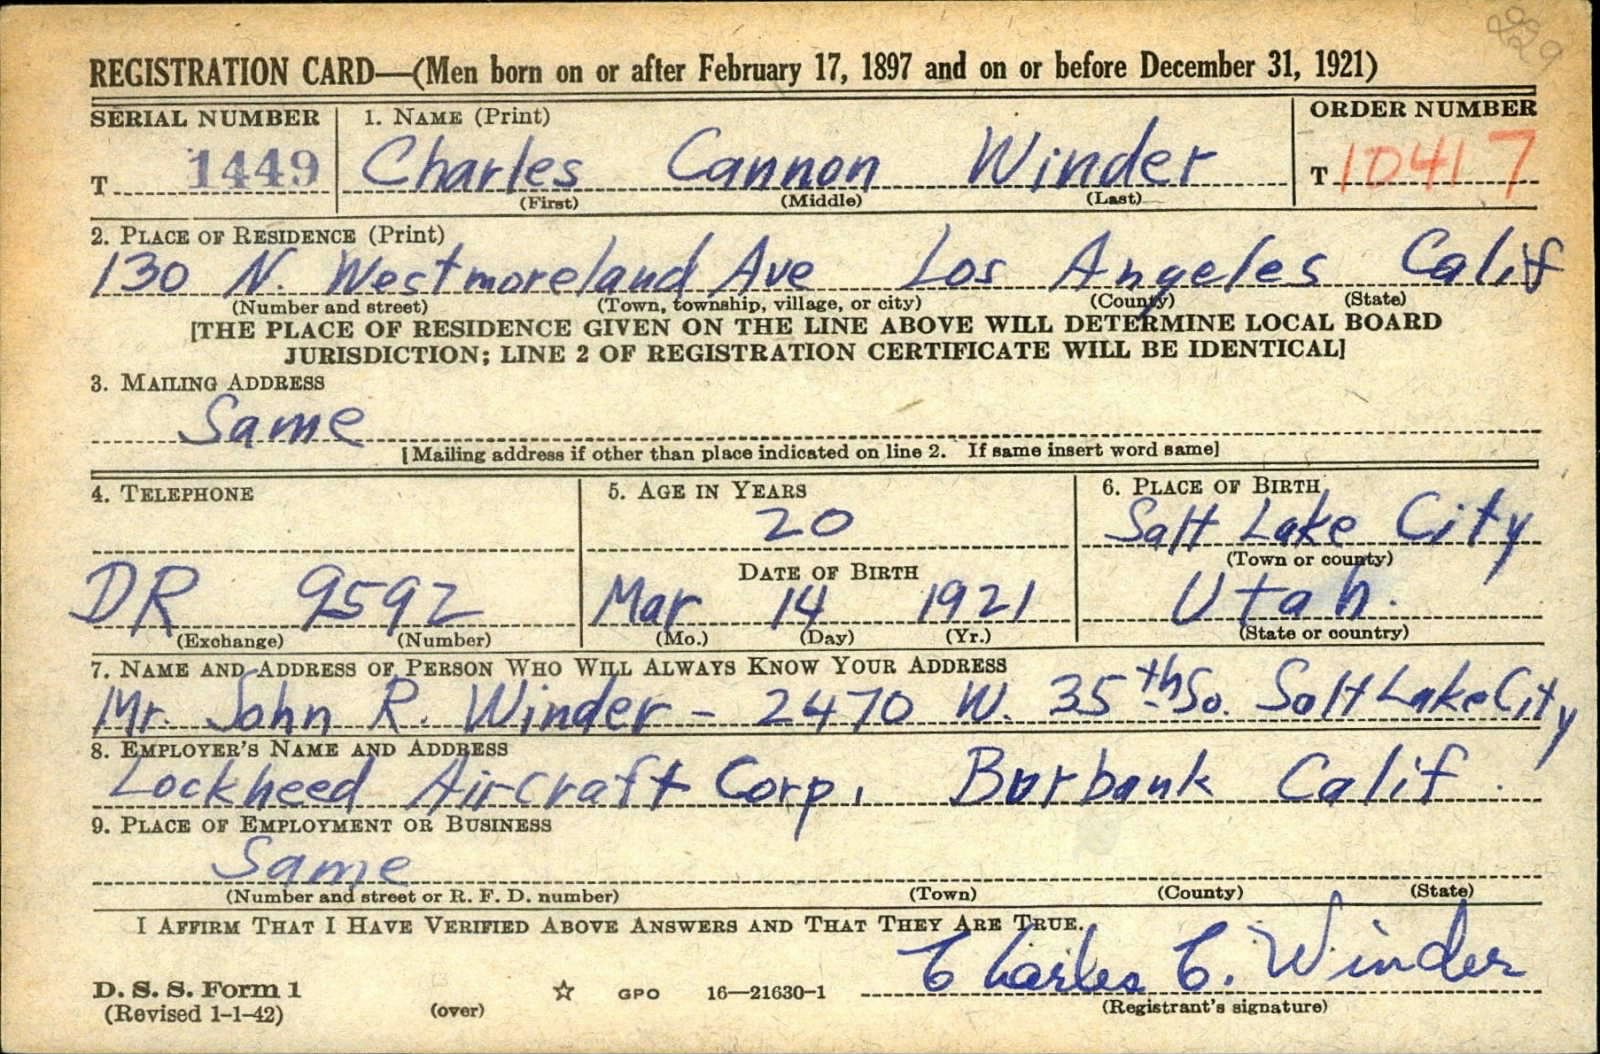 229
REGISTRATION CARD—(Men born on or after February 17, 1897 and on or before December 31, 1921)
SERIAL NUMBER 1. NAME (Print) ORDER NUMBER
T 1449 Charles Cannon Winder T 10417
(First) (Middle) (Last)
2. PLACE OF RESIDENCE (Print)
130 N. Westmoreland Ave Los Angeles Calif
(Number and street) (Town, township, village, or city) (County) (State)
[THE PLACE OF RESIDENCE GIVEN ON THE LINE ABOVE WILL DETERMINE LOCAL BOARD
JURISDICTION; LINE 2 OF REGISTRATION CERTIFICATE WILL BE IDENTICAL]
3. MAILING ADDRESS
Same
[Mailing address if other than place indicated on line 2. If same insert word same]
4. TELEPHONE 5. AGE IN YEARS 6. PLACE OF BIRTH
20 Salt Lake City
DATE OF BIRTH (Town or county)
DR 9592 Mar 14 1921 Utah.
(Exchange) (Number) (Mo.) (Day) (Yr.) (State or country)
7. NAME AND ADDRESS OF PERSON WHO WILL ALWAYS KNOW YOUR ADDRESS
Mr. John R. Winder - 2470 W. 35th So. Salt Lake City
8. EMPLOYER'S NAME AND ADDRESS
Lockheed Aircraft Corp. Burbank Calif.
9. PLACE OF EMPLOYMENT OR BUSINESS
Same
(Number and street or R. F. D. number) (Town) (County) (State)
I AFFIRM THAT I HAVE VERIFIED ABOVE ANSWERS AND THAT THEY ARE TRUE.
Charles C. Winder
D. S. S. Form 1
(Revised 1-1-42) (over) ☆ GPO 16—21630-1 (Registrant's signature)